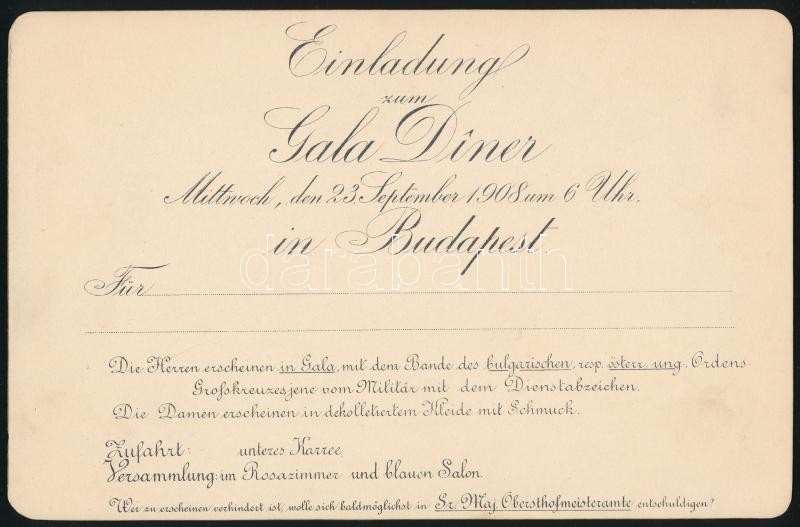 Einladung
zum
Gala Dîner
Mittwoch, den 23. September 1908 um 6 Uhr.
in Budapest.
darabanth
Für
Die Herren erscheinen in Gala, mit dem Bande des bulgarischen, resp. österr. ung. Ordens
Großkreuzes jene vom Militär mit dem Dienstabzeichen.
Die Damen erscheinen in dekolletiertem Kleide mit Schmuck.
Zufahrt: unteres Karree,
Versammlung: im Rosazimmer und blauen Salon.
Wer zu erscheinen verhindert ist, wolle sich baldmöglichst in Sr. Maj. Obersthofmeisteramte entschuldigen?